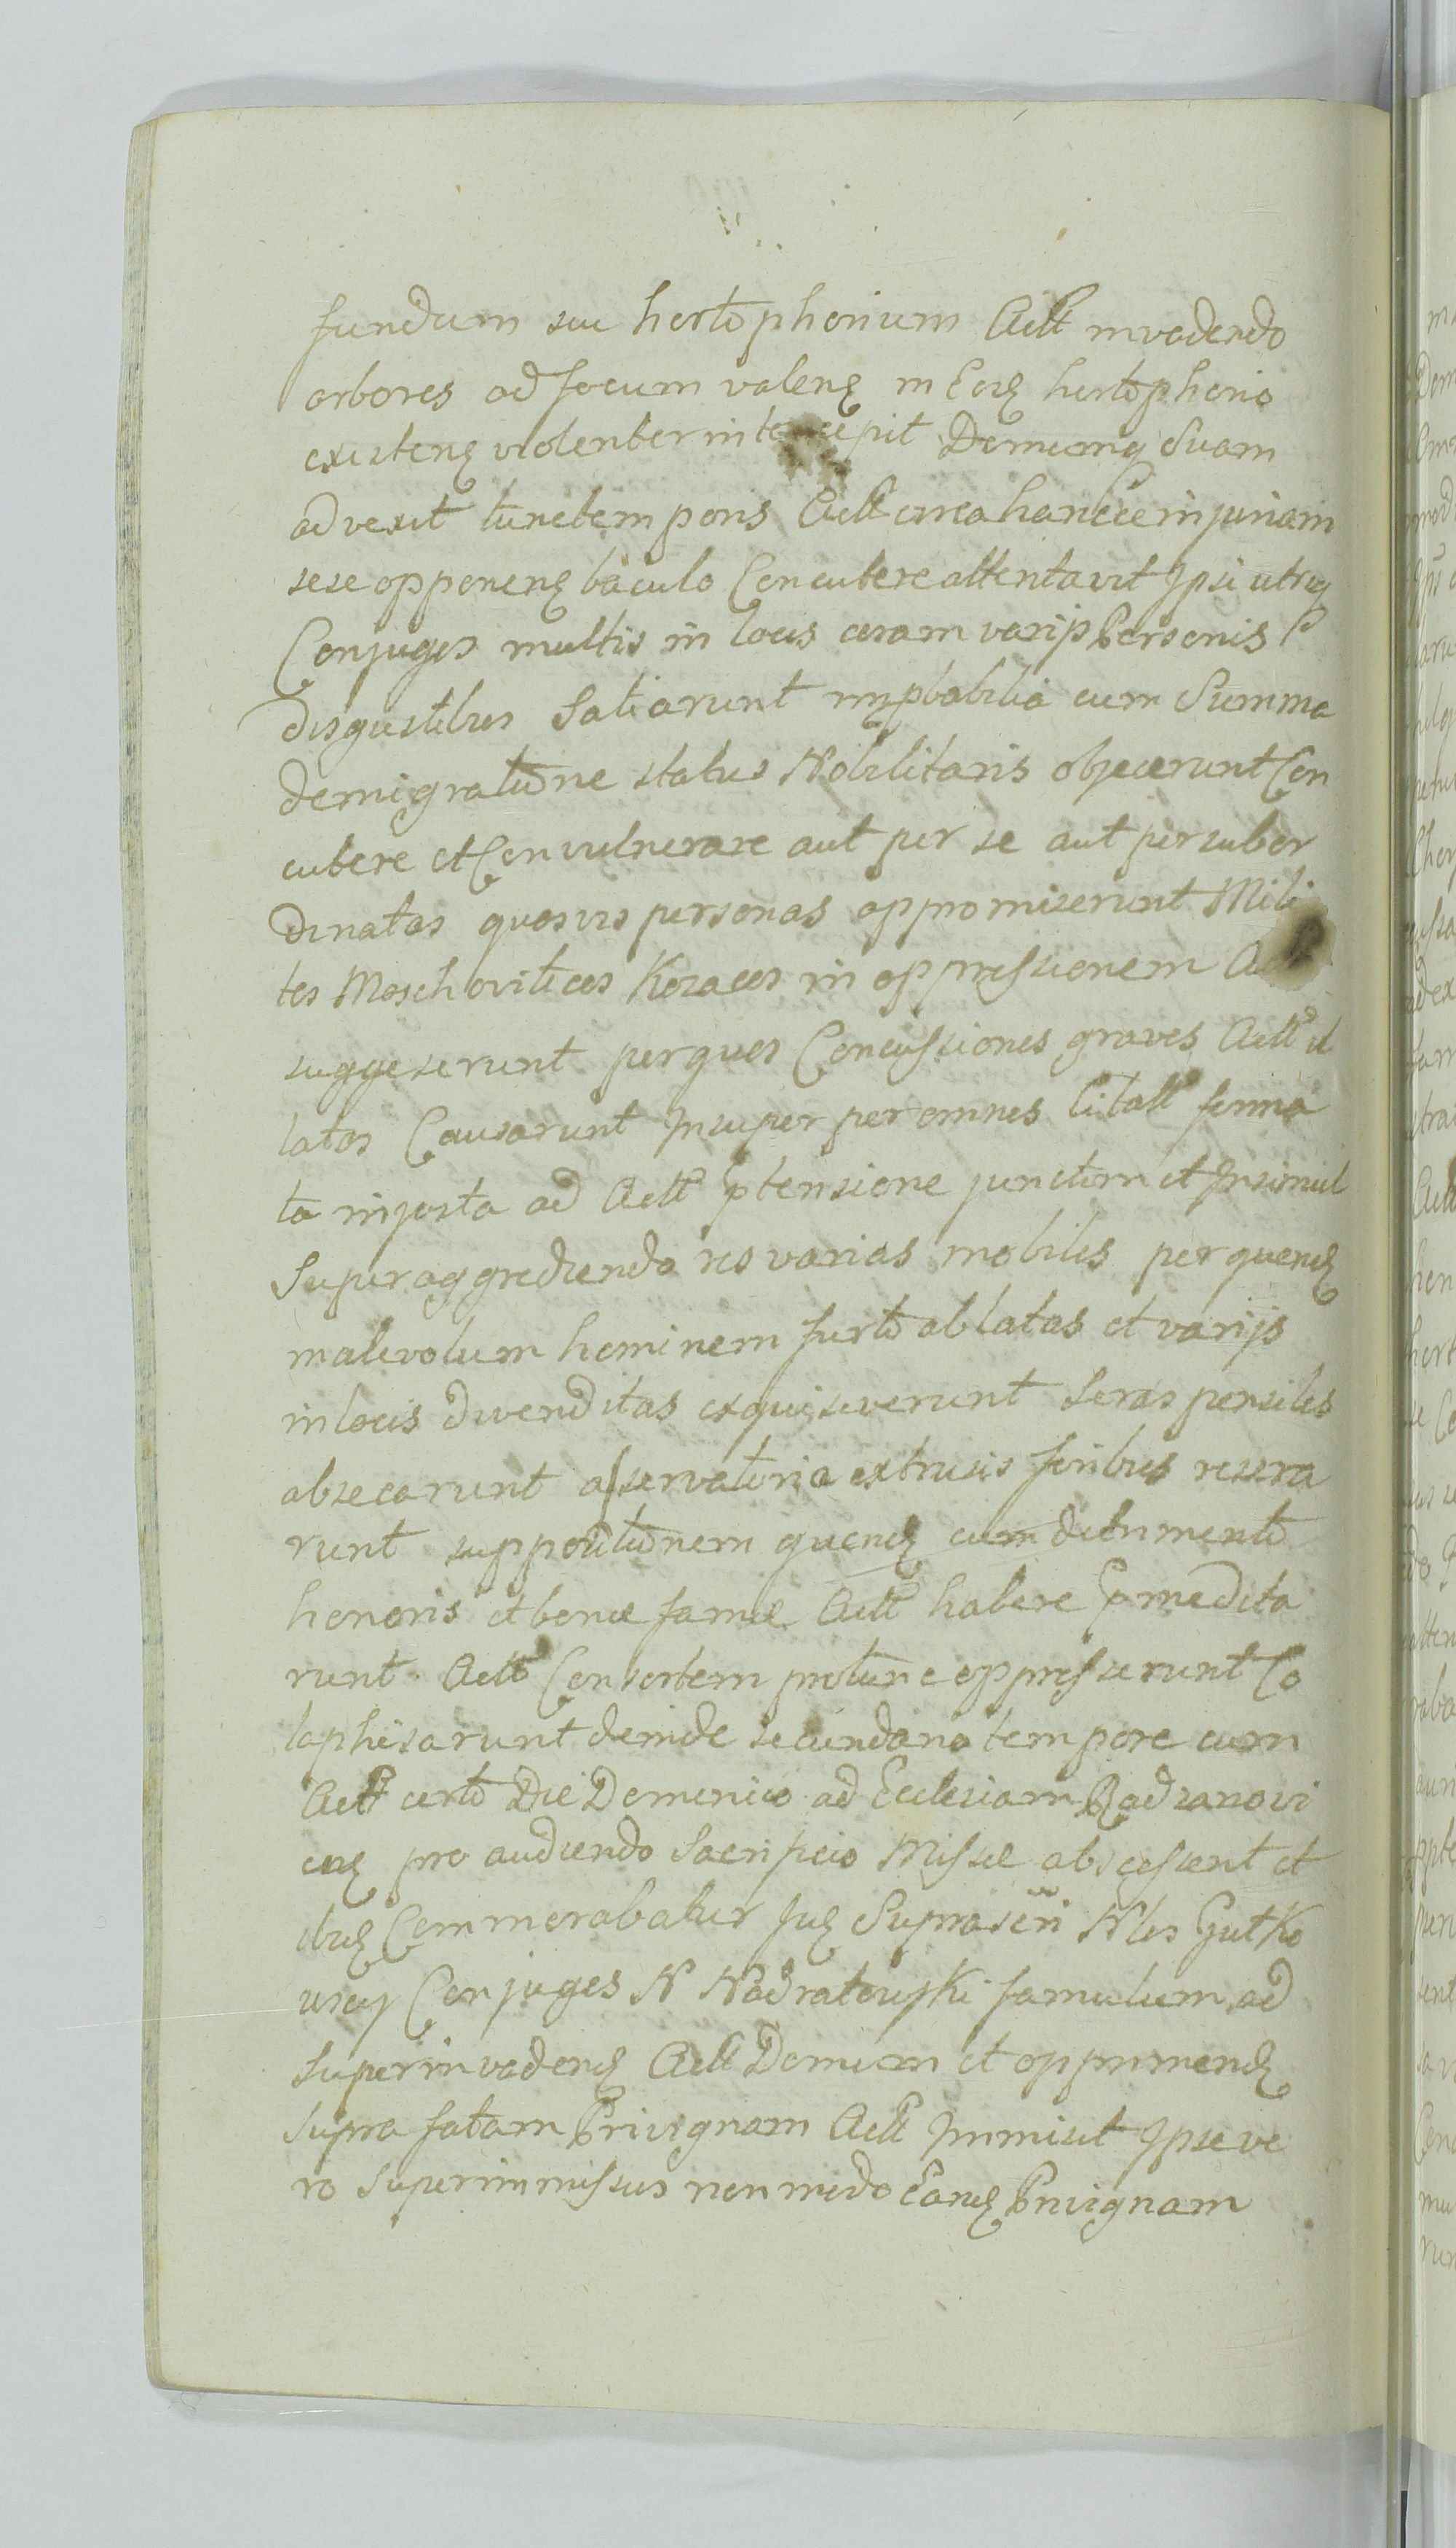 fundum seu hortophorium Actt invadendo
arbores ad focum valenȩ in Eodȩ hortophorio
existenȩ violenter intercepit Domumqȝ Suam
advexit tunc temporis Actt circa hancce injuriam
sese opponenȩ baculo Concutere attentavit Ipsi utriqȝ
Conjuges multis in locis coram varijs Personis
disgustibus Satiarunt improbabilia cum Summa
demigratione status Nobilitaris objecerunt Con
cutere et Convulnerare aut per se aut per subor
dinatas quasvis personas appromiserunt Mili
tes Moschoviticos Kozacos in oppressionem Actt
suggeserunt per quos Concussiones graves Actt il
latas Causarunt Insuper per omnes Citatt forma
ta injusta ad Actt ptensione junctim et Insimul
Superaggrediendo res varias mobiles per quendȩ
malivolum hominem furto ablatas et varijs
in locis divenditas exquisiverunt Seras pensiles
absecarunt asservatoria extrusis foribus resera
runt suppositionem quendȩ cum detrimento
honoris et bonæ famæ Actt habere pmedita
runt Actt Consortem protunc oppresserunt Co
laphisarunt deinde secundario tempore cum
Actt certo Die Dominico ad Ecclesiam Radzanovi
cenȩ pro audiendo Sacrificio Missæ abscessent et
ibidȩ Commorabatur Suprascri Nbles Gutko
wscy Conjuges N Nadratowski famulum ad
superinvadendȩ Actt Domum et opprimendȩ
supra fatam Privignam Actt Immisit Ipse ve
ro Superimmissus non modo Eandȩ Privignam